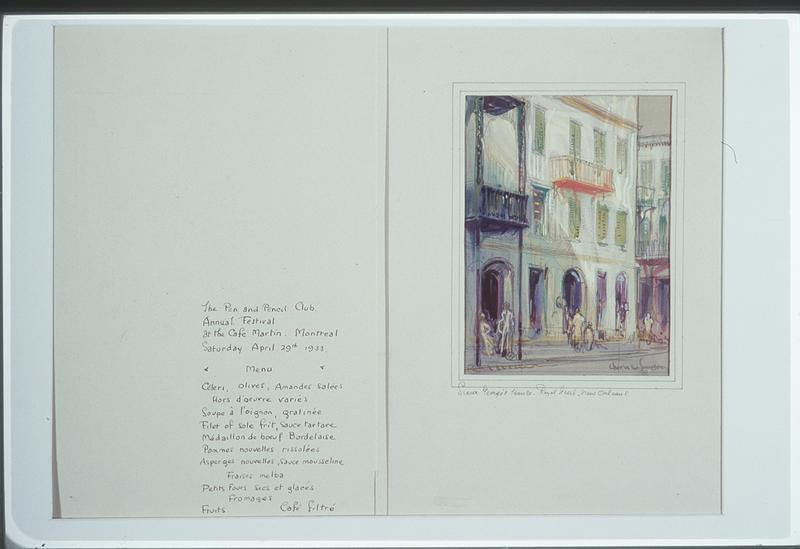 The Pen and Pencil Club.
Annual Festival
at the Café Martin. Montreal
Saturday April 29th 1933
Menu
Céleri, olives, Amandes salées
Hors d'oeuvre variés
Soupe à l'oignon, gratinée
Filet of sole frit, Sauce tartare
Médaillon de boeuf Bordelaise
Pommes nouvelles rissolées
Asperges nouvelles, Sauce mousseline
Fraises melba
Petits Fours secs et glacés
Fromages
Fruits Café filtré
Sieur George's House. Royal Street, New Orleans